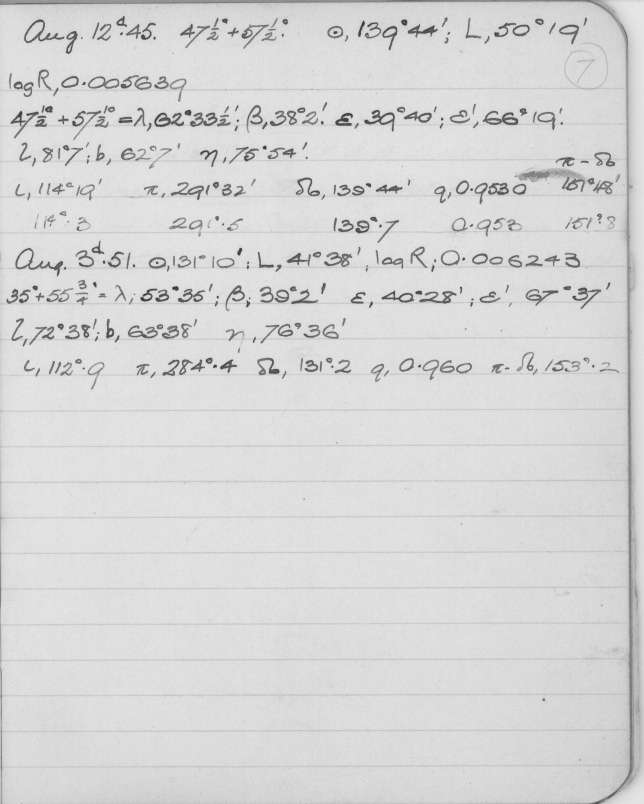 Aug. 12ᵈ.45. 47½°+57½°. ⊙, 139°44'; L, 50°19'
7
log R, 0.005639
47½°+57½°=λ, 62°33½'; β, 38°2'. ε, 39°40'; ε', 66°19'.
l, 81°7'; b, 62°7' η, 75°54'.
π-☊
ι, 114°19' π, 291°32' ☊, 139°44' q, 0.9530 151°48'
114°.3 291°.5 139°.7 0.953 151°.8
Aug. 3ᵈ.51. ⊙, 131°10'; L, 41°38', log R; 0.006243
35°+55¾°= λ; 53°35'; β; 39°2' ε, 40°28'; ε', 67°37'
l, 72°38'; b, 63°38' η, 76°36'
ι, 112°.9 π, 284°.4 ☊, 131°.2 q, 0.960 π-☊, 153°.2